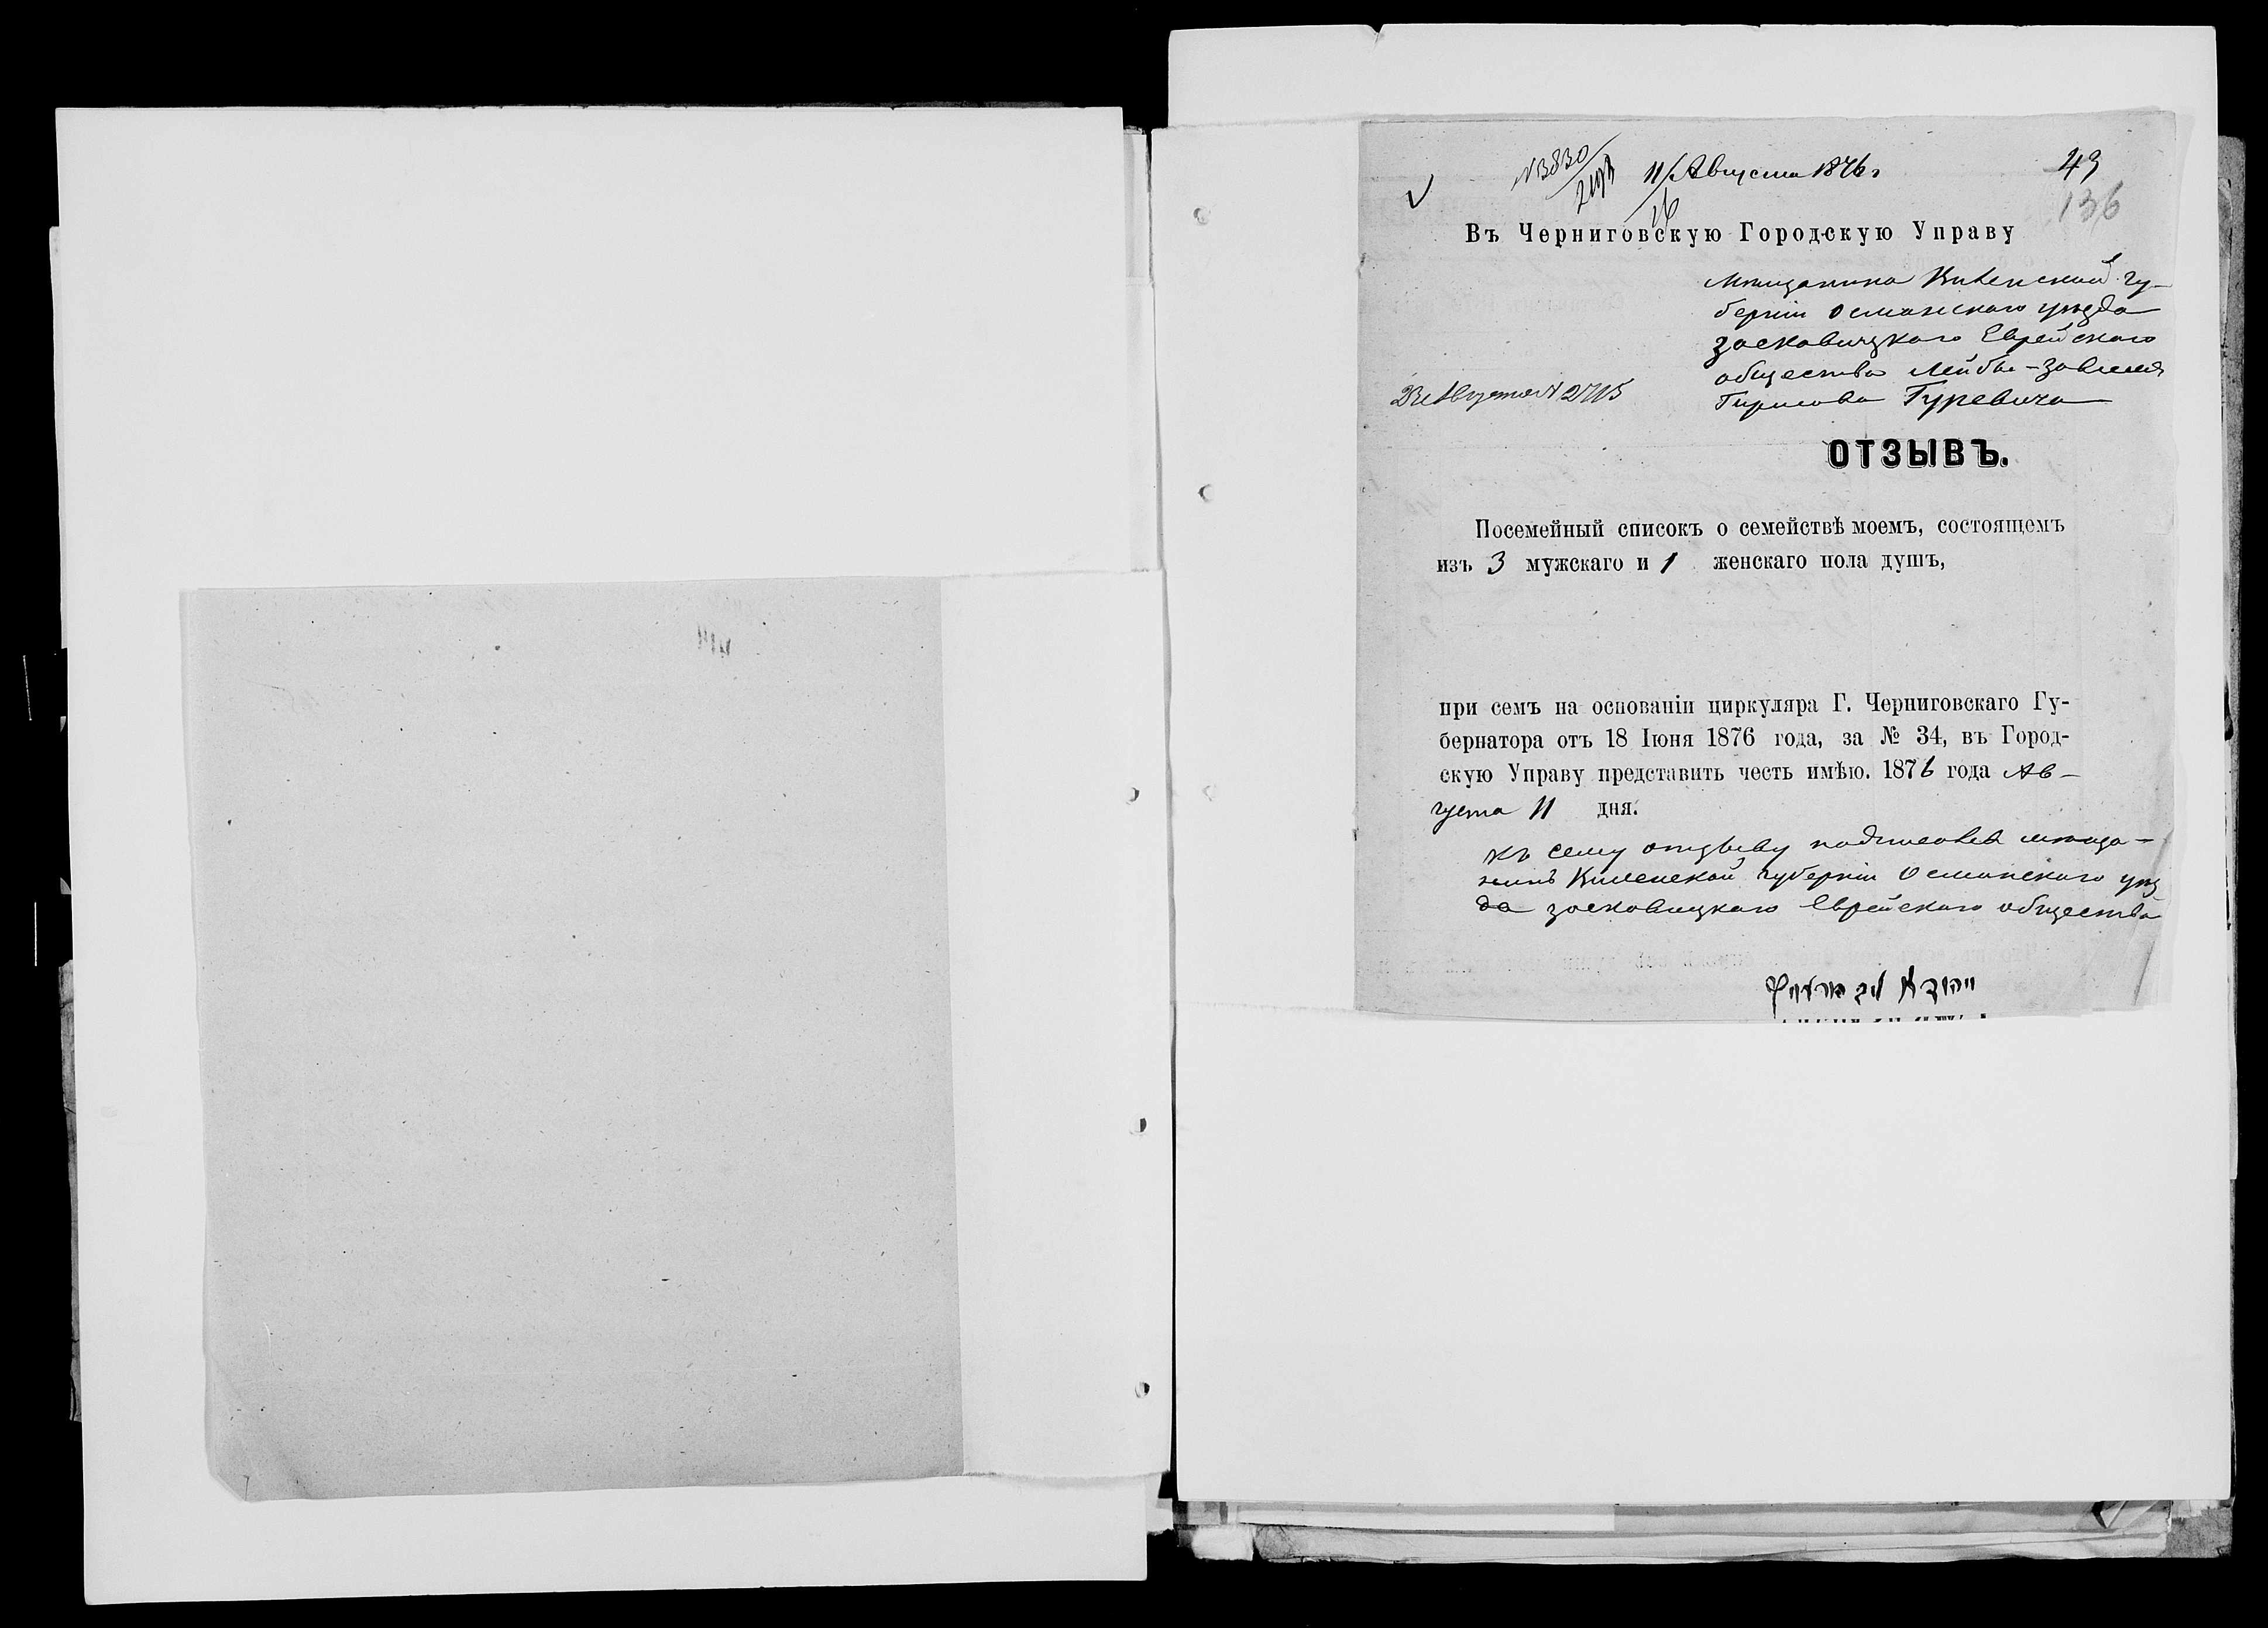 11 Августа 1876 г
43
136
Въ Черниговскую Городскую Управу
Мѣщанина Виленской гу-
берніи Ошмянскаго уѣзда
Засковицкаго Еврейскаго
общества Лейбы-Завеля
Гиршова Гуревича
23 Августа N 2715
ОТЗЫВЪ.
Посемейный списокъ о семействѣ моемъ, состоящемъ
изъ 3 мужскаго и 1 женскаго пола душъ,
при семъ на основаніи циркуляра Г. Черниговскаго Гу-
бернатора отъ 18 Іюня 1876 года, за № 34, въ Город-
скую Управу представить честь имѣю. 1876 года Ав-
густа 11 дня.
Къ сему отзыву подписался мѣща-
нинъ Виленской губерніи Ошмянскаго уѣз
да засковицкаго Еврейскаго общества